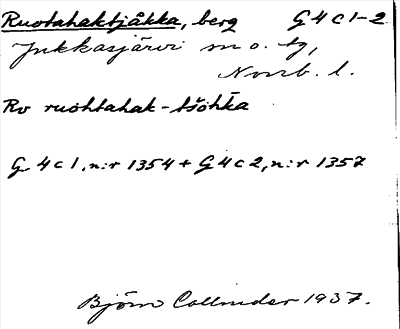 Ruotahaktjåkka, berg G 4 c 1-2
Jukkasjärvi sn o. tg,
Norrb. l.
Rv ruohtahak-tšohkka
G 4 c 1, n:r 1354 + G 4 c 2, n:r 1357
Björn Collinder 1937.